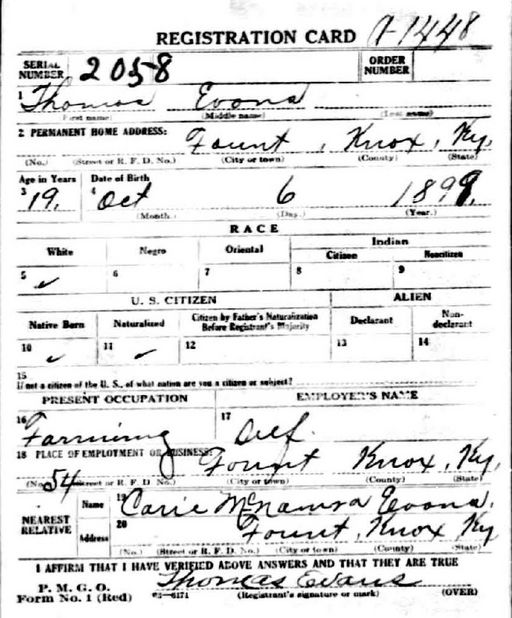 REGISTRATION CARD A-1448
SERIAL NUMBER 2058 ORDER NUMBER
1 Thomas Evans
(First name) (Middle name) (Last name)
2 PERMANENT HOME ADDRESS: Fount, Knox, Ky.
(No.) (Street or R. F. D. No.) (City or town) (County) (State)
Age in Years Date of Birth
3 19. 4 Oct 6 1899.
(Month.) (Day.) (Year.)
RACE
White Negro Oriental Indian
Citizen Noncitizen
5 ✓ 6 7 8 9
U. S. CITIZEN ALIEN
Native Born Naturalized Citizen by Father's Naturalization Before Registrant's Majority Declarant Non-declarant
10 ✓ 11 ✓ 12 13 14
15
If not a citizen of the U. S., of what nation are you a citizen or subject?
PRESENT OCCUPATION EMPLOYER'S NAME
16 Farming 17 Self.
18 PLACE OF EMPLOYMENT OR BUSINESS: Fount Knox, Ky.
(No.) 54 (Street or R. F. D. No.) (City or town) (County) (State)
NEAREST RELATIVE
Name 19 Carie McNamra Evans.
Address 20 Fount, Knox Ky
(No.) (Street or R. F. D. No.) (City or town) (County) (State)
I AFFIRM THAT I HAVE VERIFIED ABOVE ANSWERS AND THAT THEY ARE TRUE
P. M. G. O.
Form No. 1 (Red) 03-6171 Thomas Evans
(Registrant's signature or mark) (OVER)